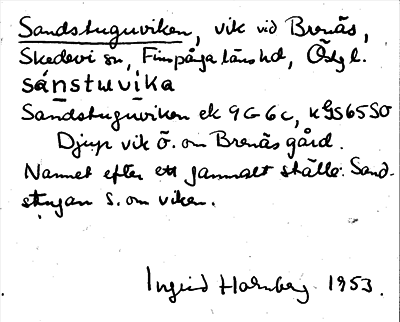 Sandstuguviken, vik vid Brenäs,
Skedevi sn, Finspånga läns hd, Östg l.
sánstuvìka
Sandstuguviken ek 9G6c, KGS65SO
Djup vik ö. om Brenäs gård.
Namnet efter ett gammalt ställe Sand-
stugan s. om viken.
Ingrid Hornberg 1953.